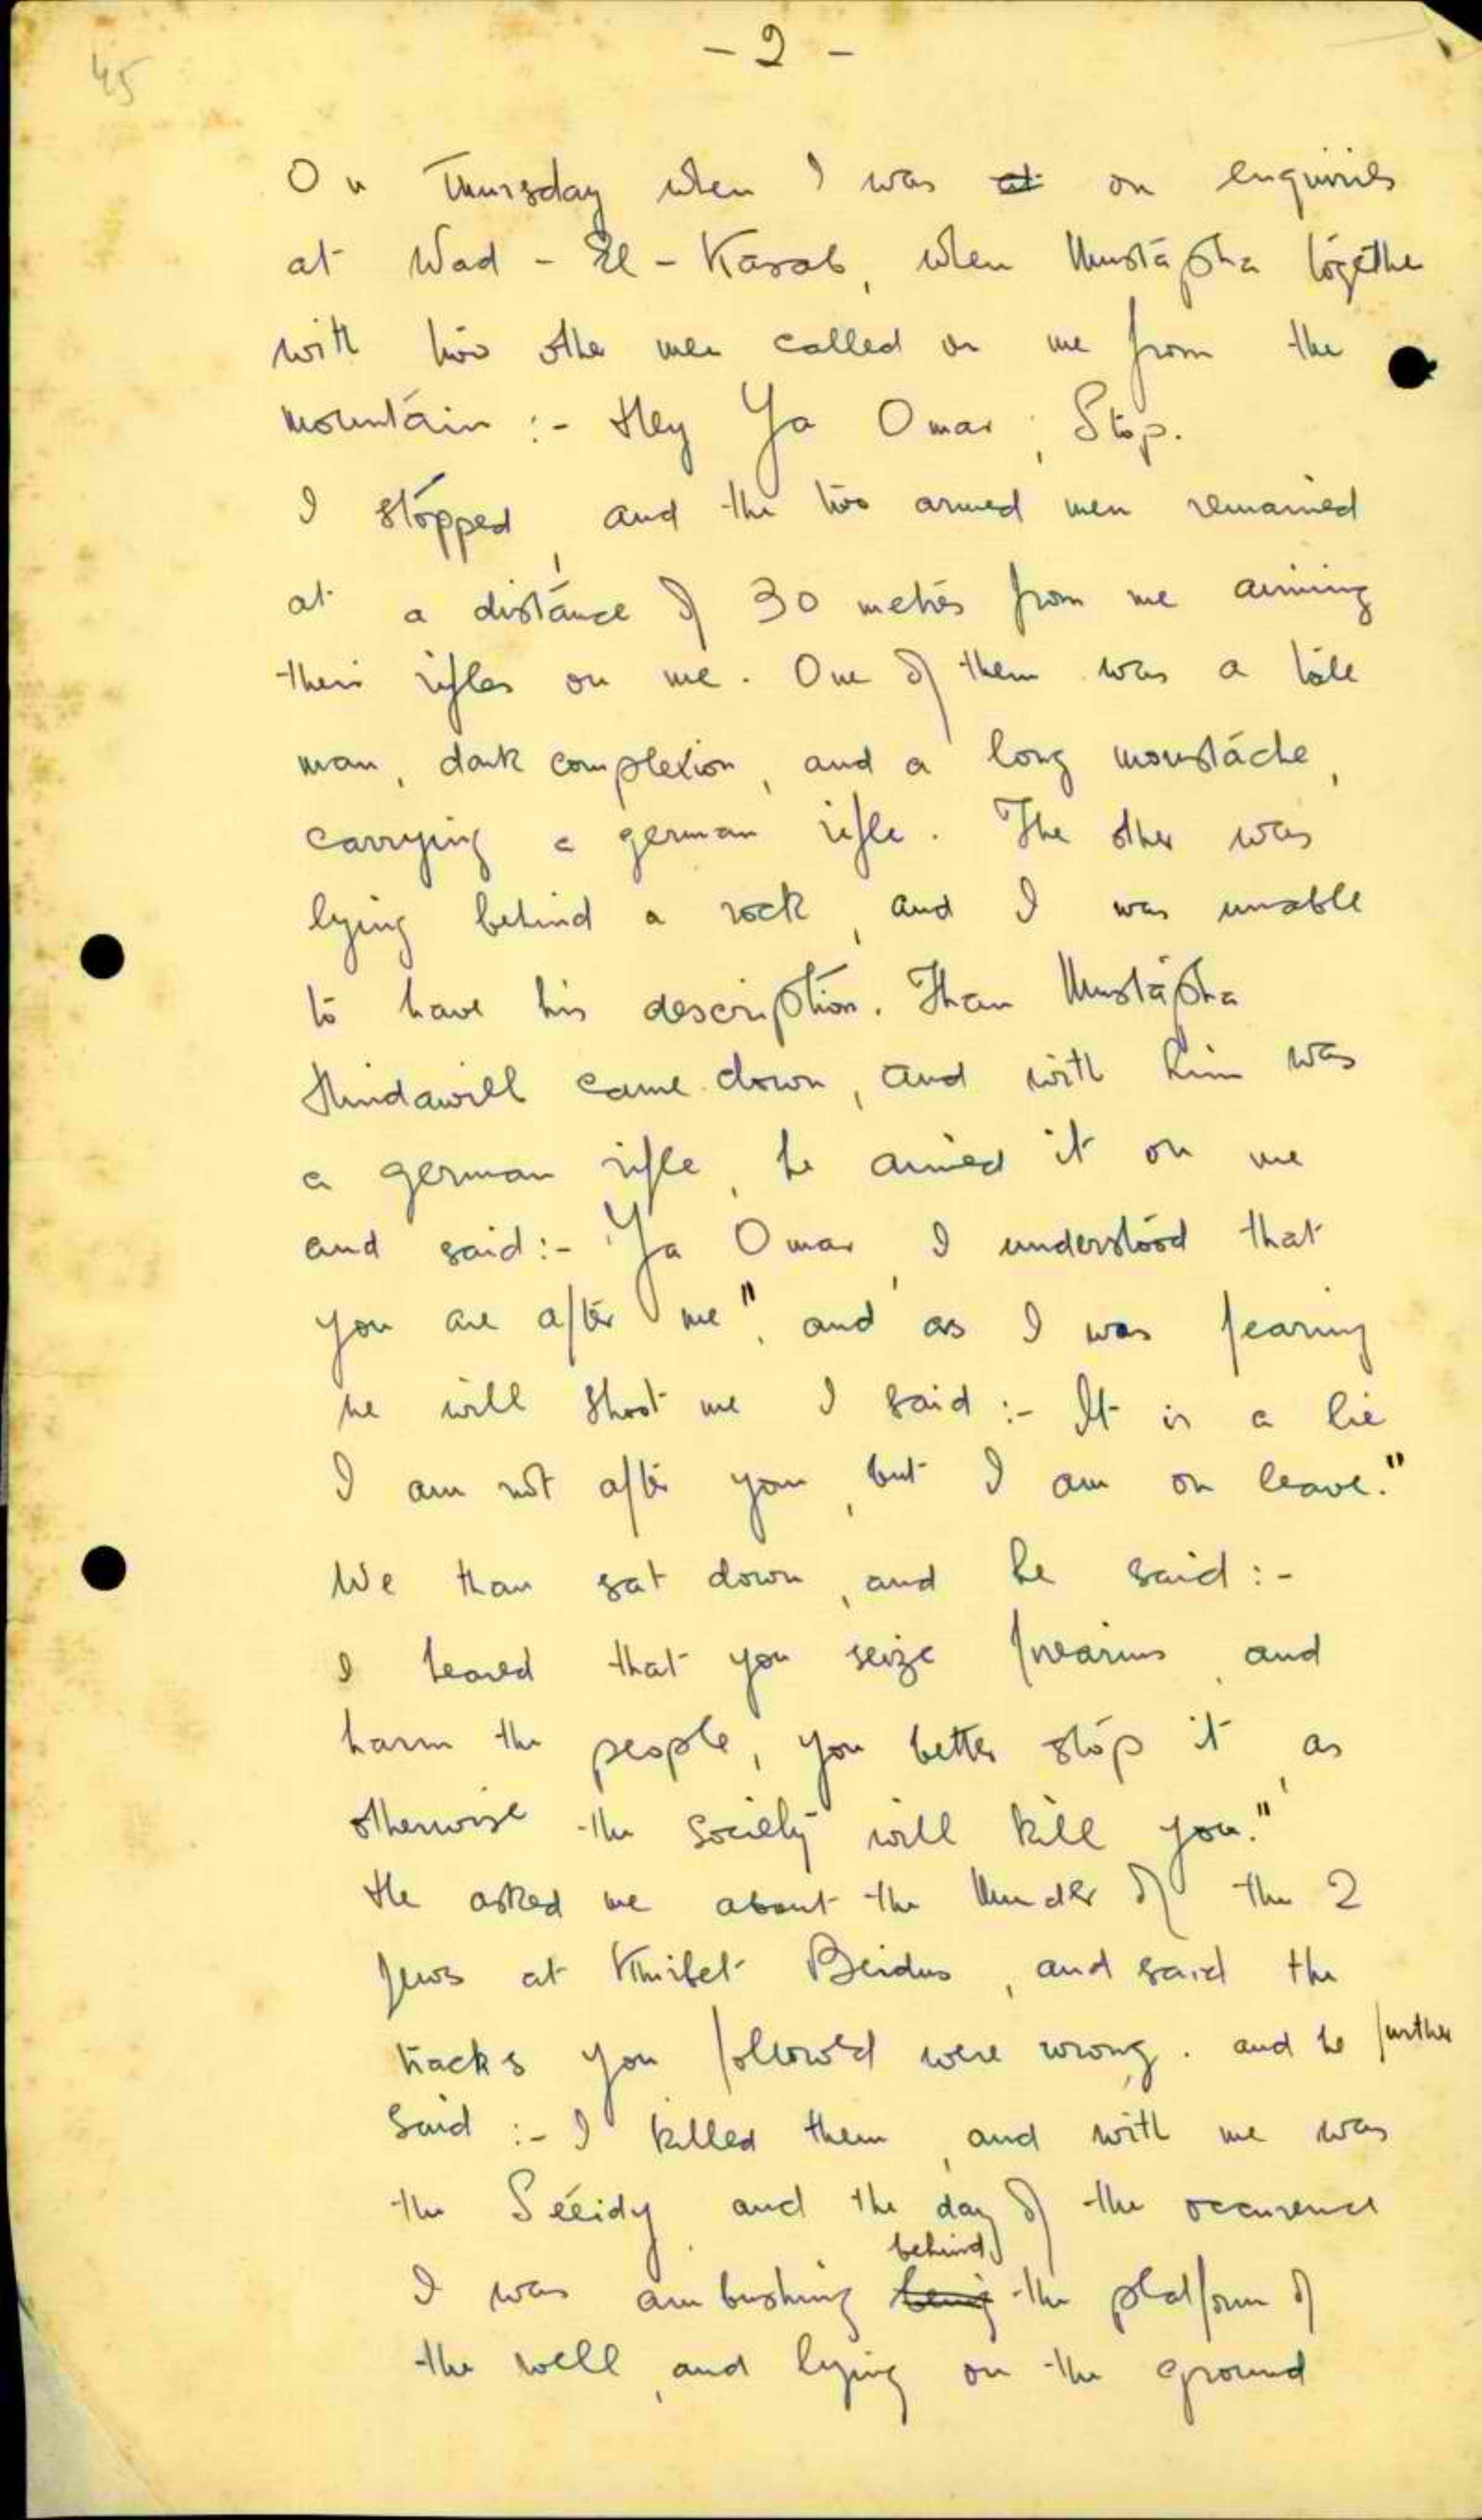 45
- 2 -
On Thursday when I was at on enquiries
at Wad - El - Kasab, when Mustapha together
with two other men called on me from the
mountain :- Hey Ya Omar, Stop.
I stopped, and the two armed men remained
at a distance of 30 metres from me aiming
their rifles on me. One of them was a tall
man, dark complexion, and a long moustache,
carrying a german rifle. The other was
lying behind a rock, and I was unable
to have his description. Than Mustapha
came down, and with him was
a german rifle, he aimed it on me
and said :- "Ya Omar, I understood that
you are after me", and as I was fearing
he will shoot me I said :- It is a lie
I am not after you, but I am on leave."
We than sat down, and he said :-
I heared that you seize firearms, and
harm the people, you better stop it, as
otherwise the society will kill you."
He asked me about the Murder of the 2
Jews at Khirbet Beidus, and said the
tracks you followed were wrong. and he further
said :- I killed them, and with me was
the Séeidy, and the day of the occurence
behind
I was ambushing being the platform of
the well, and lying on the ground